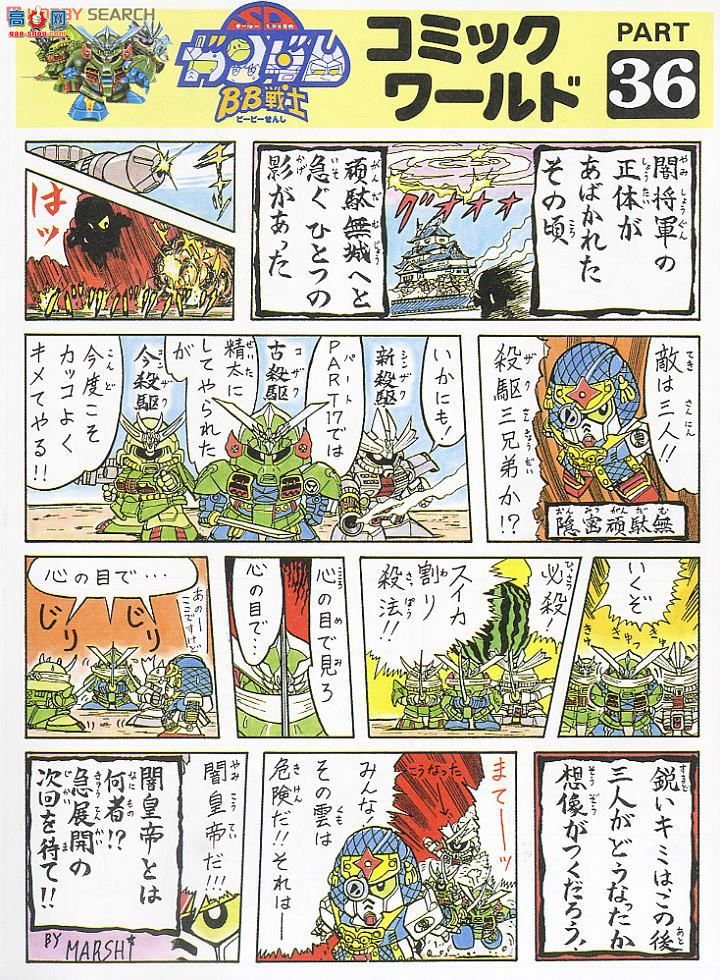 高手网
gao-shou.com
HOBBY SEARCH
SD
ガンダム
BB戦士
ビービーせんし
コミック
ワールド
PART
36
闇将軍の
正体が
あばかれた
その頃
グオオオ
頑駄無城へと
急ぐひとつの
影があった
はッ
敵は三人!!
殺駆三兄弟か!?
隠密頑駄無
いかにも!
新殺駆
PART17では
古殺駆
精太に
してやられた
が
今殺駆
今度こそ
カッコよく
キメてやる!!
いくぞ
ぎゅっ
必殺!
スイカ
割り
殺法!!
心の目で見ろ
心の目で…
心の目で…
あのー
ここですけど
じり
じり
鋭いキミはこの後
三人がどうなったか
想像がつくだろう!
まてーッ
こうなった
みんな!
その雲は
危険だ!!それは―
闇皇帝だ!!!
闇皇帝とは
何者!?
急展開の
次回を待て!!
BY MARSHI